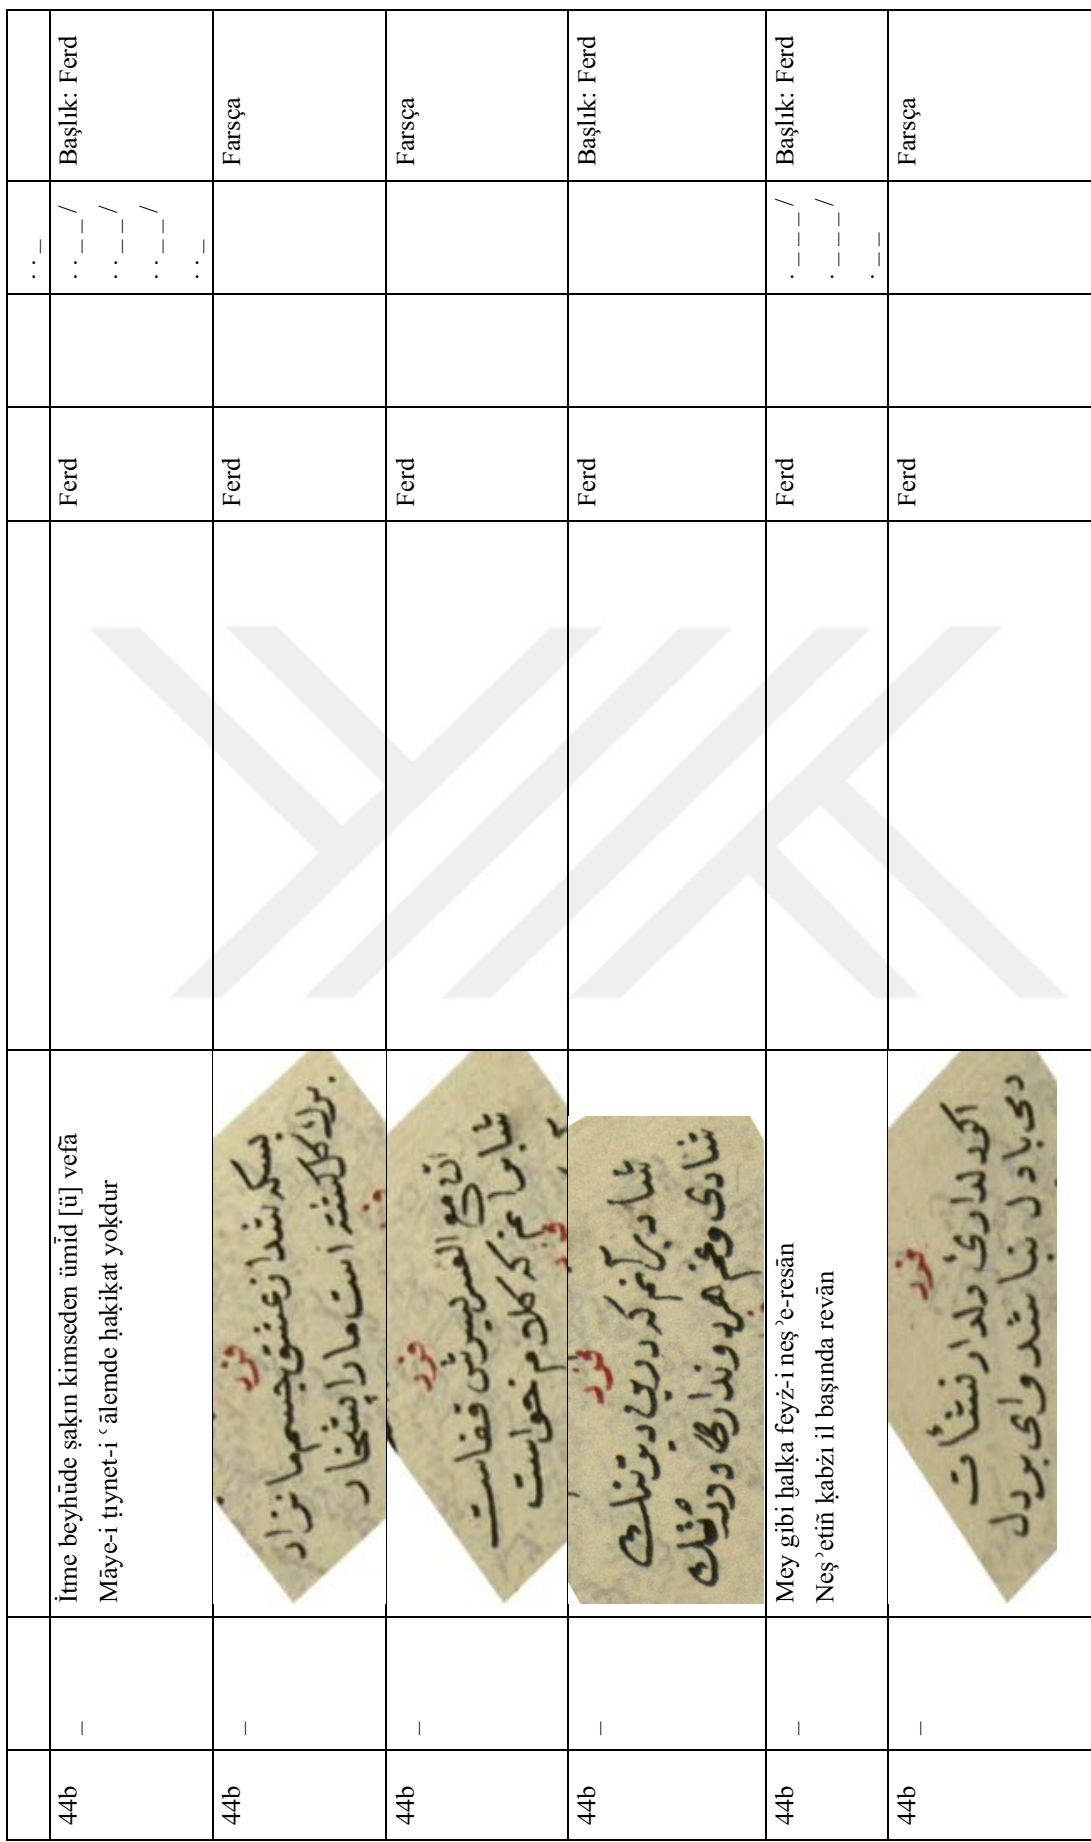 . . _
44b
_
İtme beyhūde ṣaḳın kimseden ümīd [ü] vefā
Māye-i ṭıynet-i ʿālemde ḥaḳīḳat yoḳdur
Ferd
. . _ _ /
. . _ _ /
. . _ _ /
. . _
Başlık: Ferd
44b
_
فرد
بسكه شد از عشق جسم ما نزار
است ما را
Ferd
Farsça
44b
_
فرد
قفاست
كلام خواست
Ferd
Farsça
44b
_
فرد
شاد بر آنم كه درين تنك
شادى و غم هر دو ندارد درنك
Ferd
Başlık: Ferd
44b
_
Mey gibi ḫalḳa feyż-i neşʾe-resān
Neşʾetiñ ḳabżı il başında revān
Ferd
. _ _ _ /
. _ _ _ /
. _ _
Başlık: Ferd
44b
_
فرد
دلدار نشأت
دل نباشد واى بر دل
Ferd
Farsça